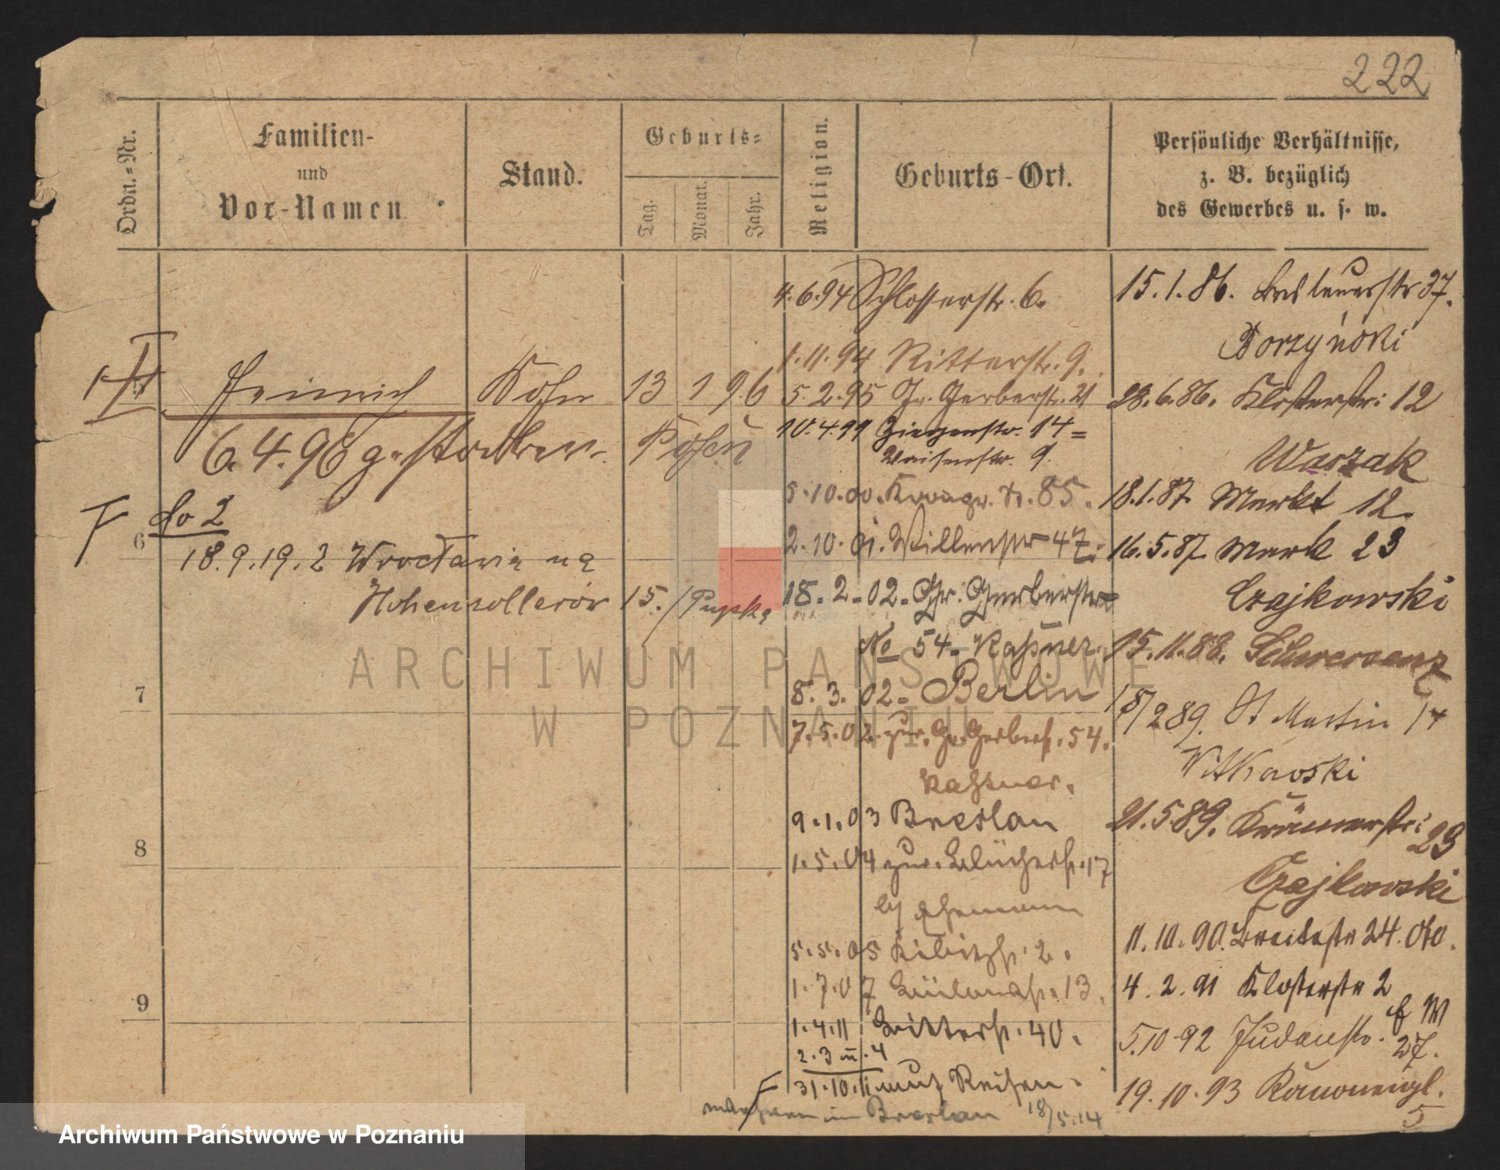 222
Ordn.-Nr.
Familien-
und
Vor-Namen
Stand.
Geburts-
Tag.
Monat.
Jahr.
Religion.
Geburts-Ort.
Persönliche Verhältnisse,
z. B. bezüglich
des Gewerbes u. s. w.
4.6.94 Schlosserstr. 6.
15.1.86. Breslauerstr 37.
Dorzyński
1.11.94 Ritterstr. 9.
Heinrich Sohn 13 1 96
5.2.95 Gr. Gerberstr. 21
28.6.86. Klosterstr. 12
6.4.96 gestorben. Posen
10.4.99 Ziegenstr. 14=
Waisenstr. 9.
Warzak
5.10.00. 85.
18.1.87. Markt 12.
do 2
6
18.9.19. z Wrocławia na
2.10.01. 47.
16.5.87. Mark 23
Hohenzollerów 15. / Pupka
18.2.02. Gr. Gerberstr
Czajkowski
No 54. Kaßner.
15.11.88. Schwersenz
7
8.3.02. Berlin
18/2 89. St Martin 14
7.5.02. zur. Gr. Gerberstr. 54.
Kaßner.
Witkowski
9.1.03 Breslau
21.5.89. Krämerstr: 23
8
1.5.04 zur. Blücherstr. 17
Czajkowski
11.10.90. Breitestr 24.
5.5.05 2.
1.7.07 13.
4.2.91 Klosterstr 2
9
1.4.11 Ritterstr. 40.
5.10.92 Judenstr. 27.
2.3 u. 4
31.10.11 nach Reisen.
19.10.93 Kanonenpl. 5
in Breslau 18/5.14
ARCHIWUM PAŃSTWOWE
W POZNANIU
Archiwum Państwowe w Poznaniu